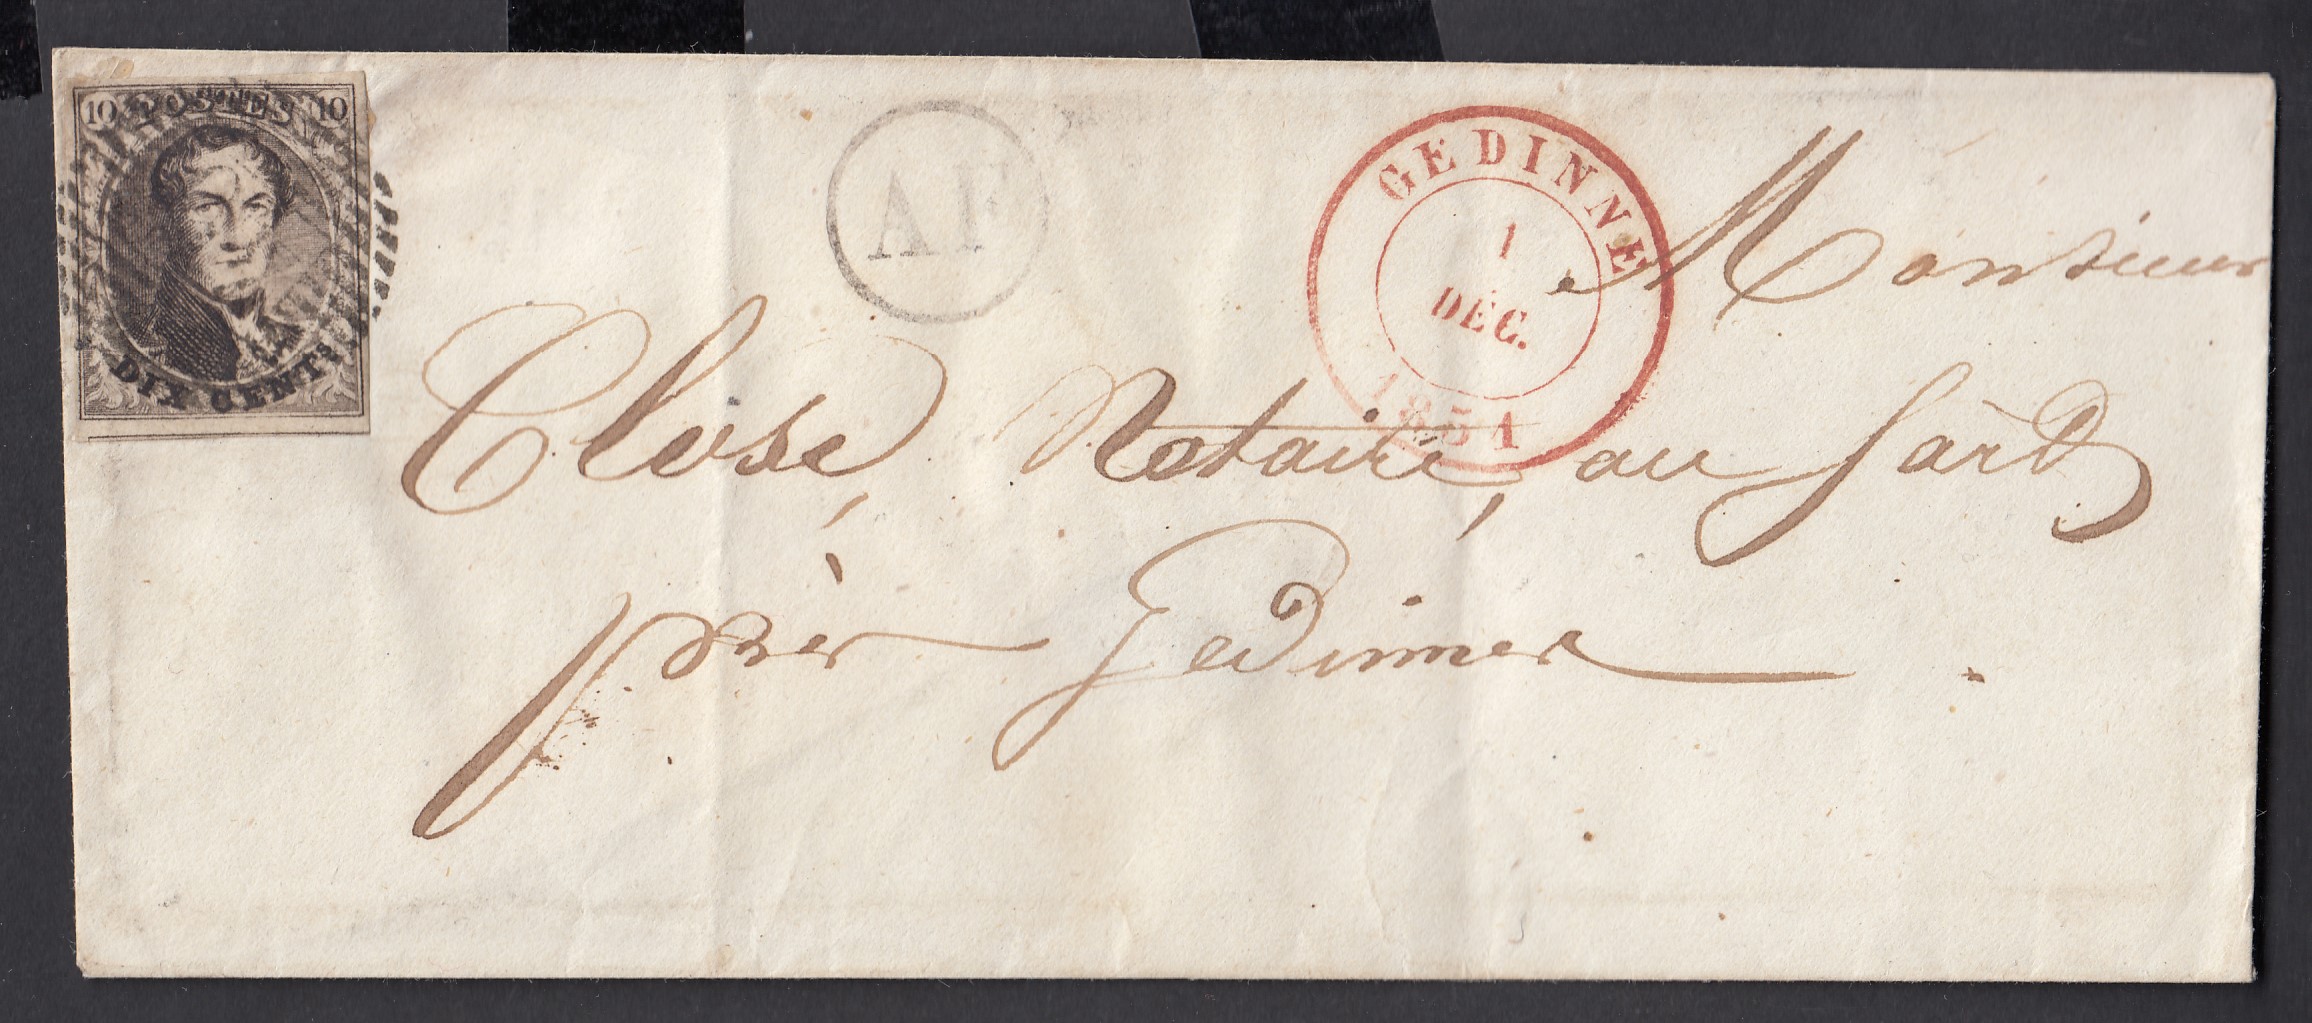 10 POSTES 10
DIX CENTS
AF
GEDINNE
1
DÉC.
1851
Monsieur
Close, Notaire, au Sart
près Gedinne.